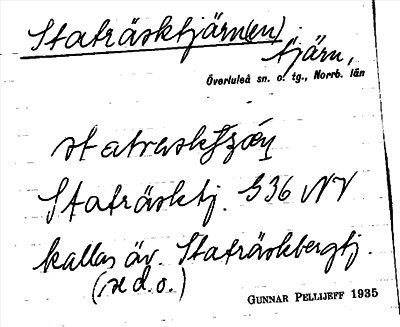 Staträsktjärn(en)
tjärn,
Överluleå sn. o. tg., Norrb. län
Staträsktj. S36 NV
kallas äv. Staträskbergtj.
(se d.o.)
GUNNAR PELLIJEFF 1935